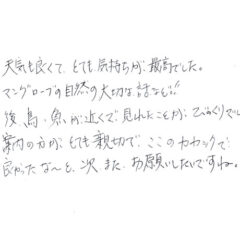 天気も良くて、とても気持ちが最高でした。
マングローブの自然の大切な話など!!
後、鳥・魚が近くで見れたことがびっくりでし
案内の方が、とても親切で、ここのカヤックで
良かったな〜と、次、また、お願いしたいですね。